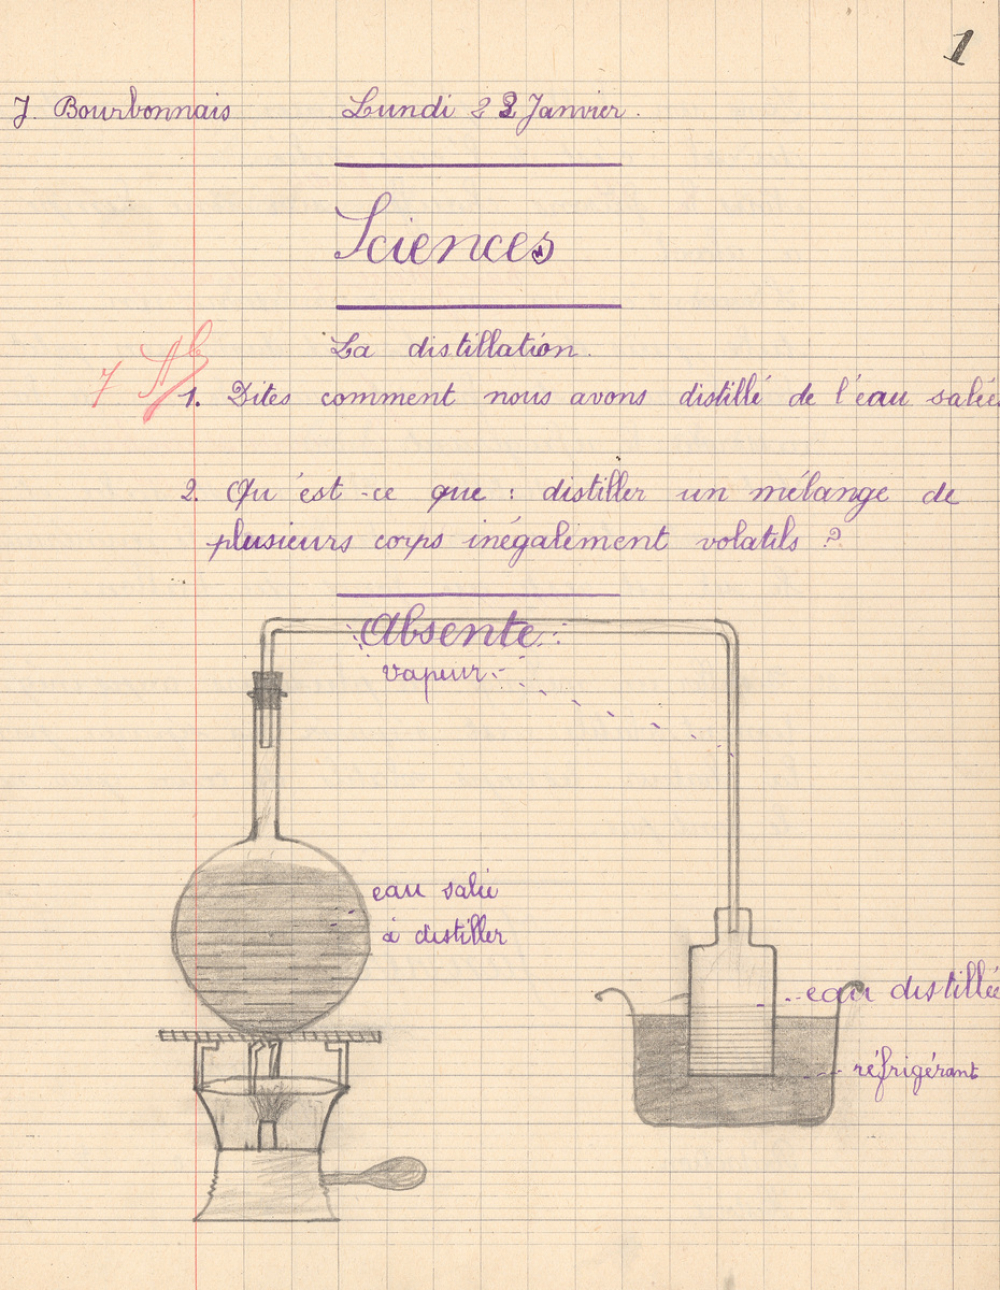 1
J. Bourbonnais Lundi 22 Janvier.
Sciences
La distillation.
7 Ab
1. Dites comment nous avons distillé de l'eau salée
2. Qu'est-ce que : distiller un mélange de
plusieurs corps inégalement volatils ?
Absente
vapeur
eau salée
à distiller
eau distillée
réfrigérant